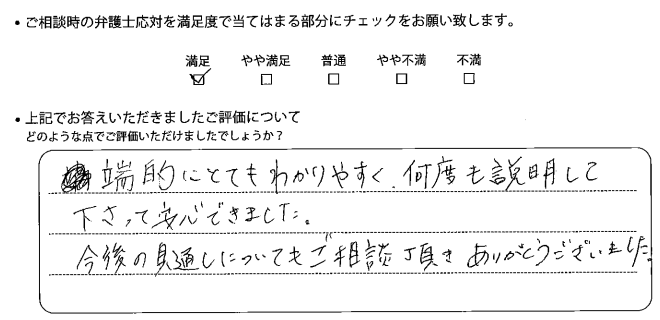 ・ご相談時の弁護士応対を満足度で当てはまる部分にチェックをお願い致します。
満足 やや満足 普通 やや不満 不満
☑ □ □ □ □
・上記でお答えいただきましたご評価について
どのような点でご評価いただけましたでしょうか？
端的にとてもわかりやすく、何度も説明して
下さって安心できました。
今後の見通しについてもご相談頂きありがとうございました